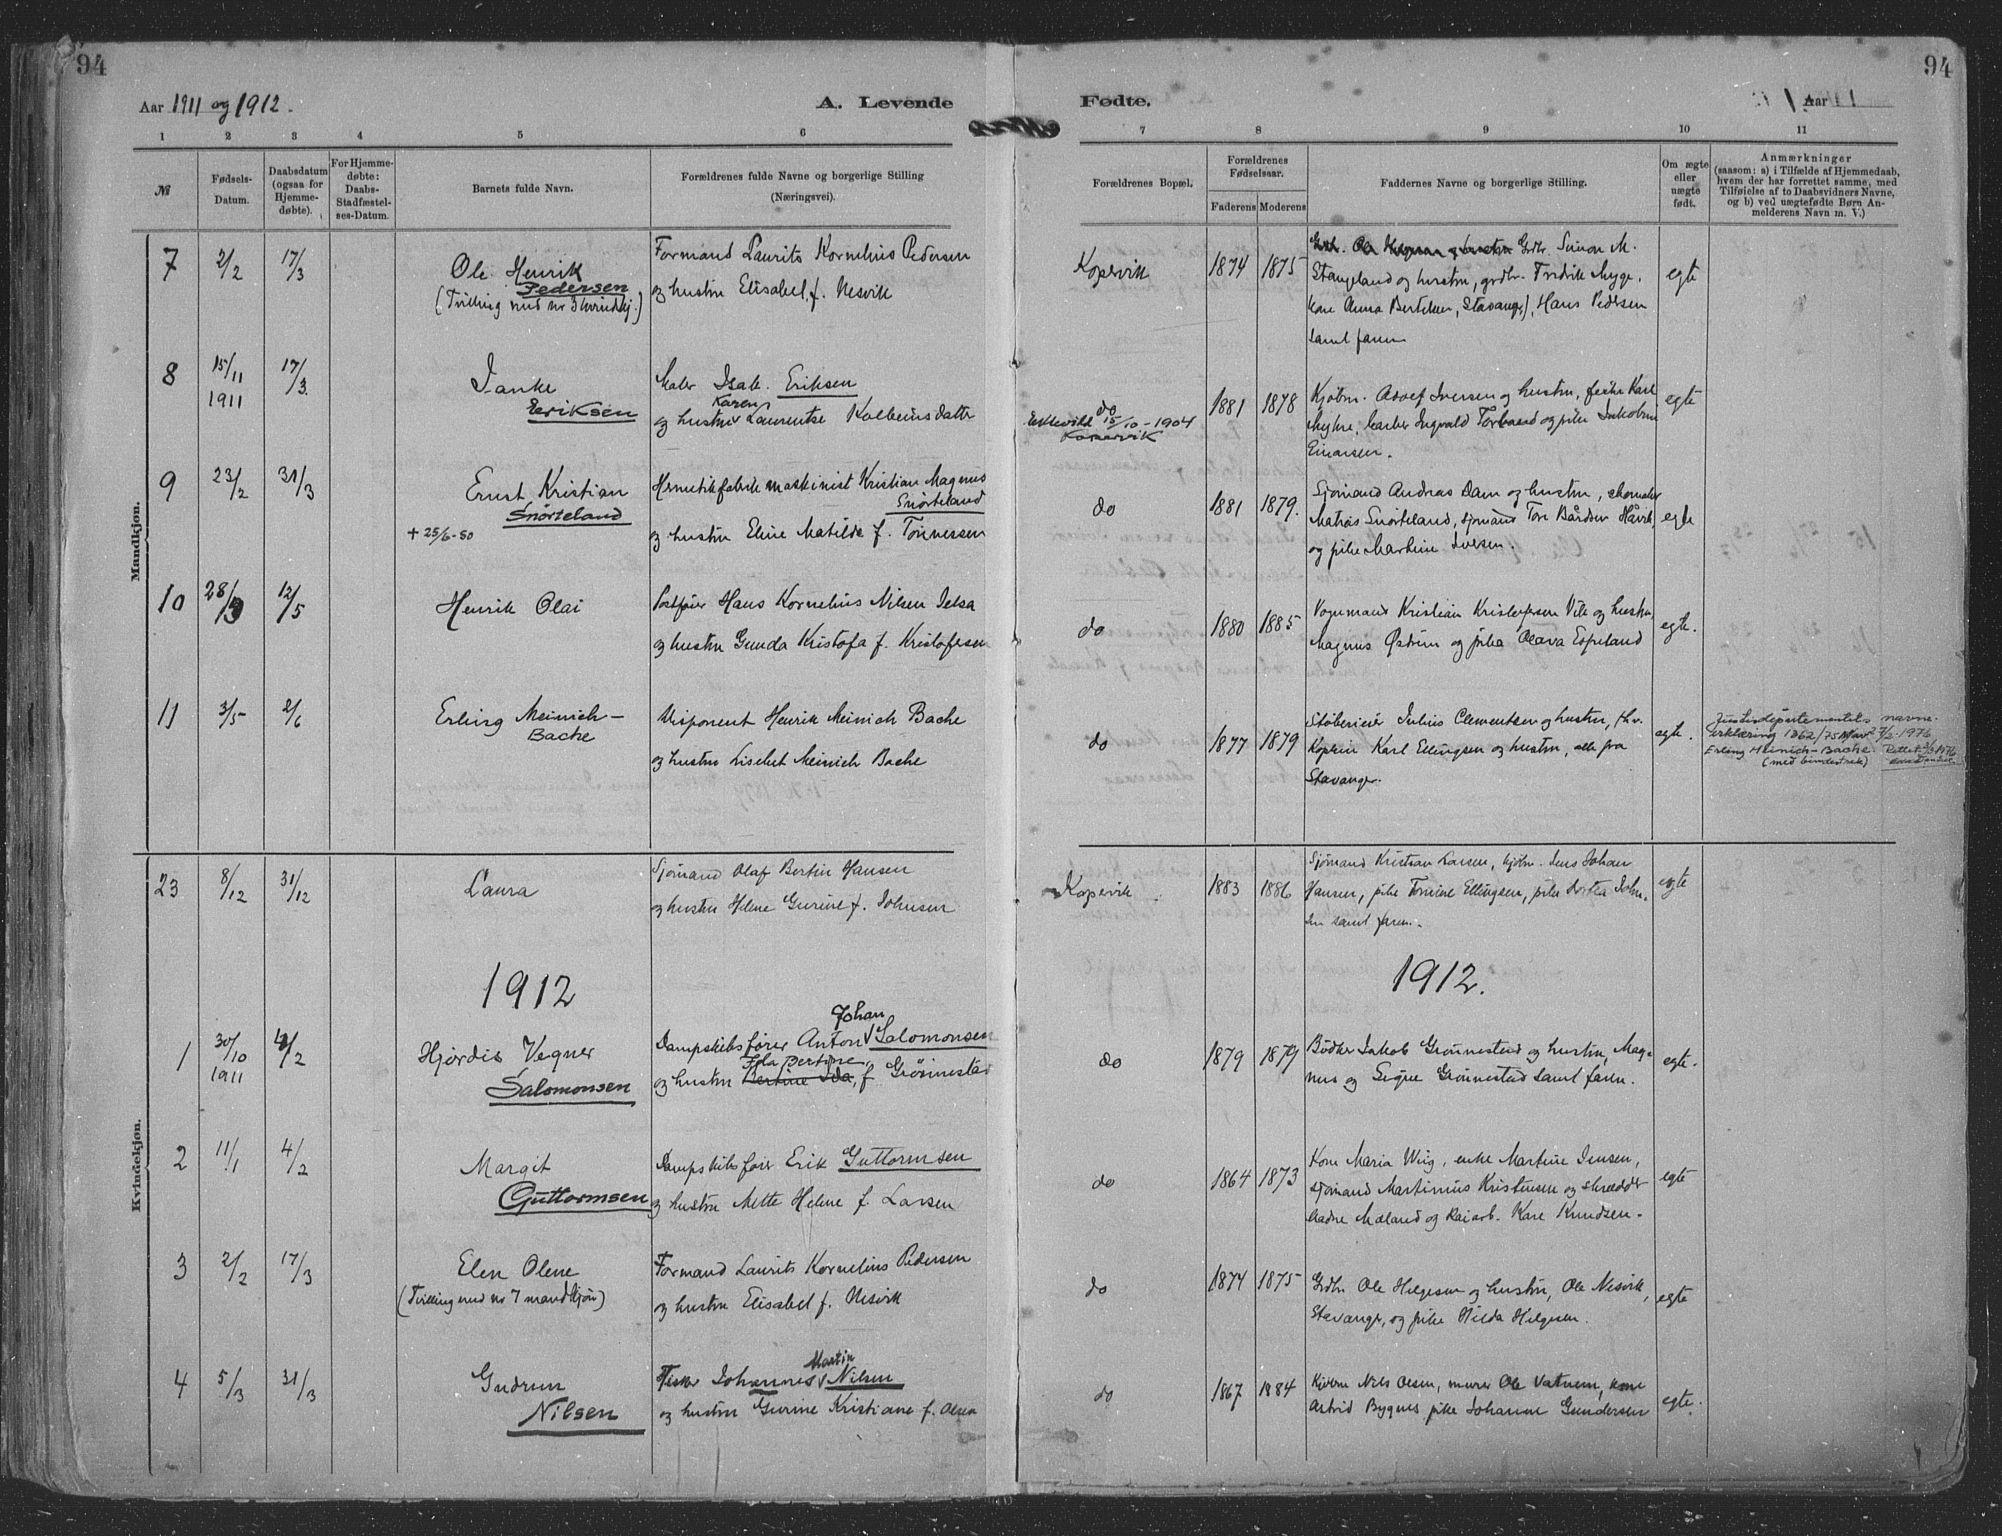 94
Aar 1911 og 1912.
A. Levende
1 2 3 4 5 6
№
Fødsels-
Datum.
Daabsdatum
(ogsaa for
Hjemme-
døbte).
For Hjemme-
døbte:
Daabs-
Stadfæstel-
ses-Datum.
Barnets fulde Navn.
Forældrenes fulde Navne og borgerlige Stilling
(Næringsvei).
Mandkjøn.
7 2/2 17/3
Ole Henrik
Pedersen
(Tvilling med no 3 kvindekj.)
Formand Laurits Kornelius Pedersen
og hustru Elisabet f. Nesvik
8 15/11 1911 17/3
Janke
Eeriksen
Maler Isak Eriksen
Karen
og hustru Laurentse Kolbeinsdatter
9 23/2 31/3
Ernst Kristian
Snørteland
+ 25/6-50
Hermetikfabrik maskinist Kristian Magnus
Snørteland
og hustru Eline Matilde f. Tønnessen
10 28/3 12/5
Henrik Olai
Postfører Hans Kornelius Nilsen Jelsa
og hustru Gunda Kristofa f. Kristofersen
11 3/5 2/6
Erling Meinich-
Bache
Disponent Henrik Meinich Bache
og hustru Lisebet Meinich Bache
Kvindekjøn.
23 8/12 31/12
Laura
Sjømand Olaf Bertin Hansen
og hustru Helene Gurine f. Johnsen
1912
1 30/10 1911 4/2
Hjørdis Vegner
Salomonsen
Johan
Dampskibsfører Anton Salomonsen
Ida Bertine
og hustru Bertine Ida, f. Grønnestad
2 11/1 4/2
Margit
Guttormsen
Dampskibsfører Erik Guttormsen
og hustru Mette Helene f. Larsen
3 2/2 17/3
Elen Olene
(Tvilling med no 7 mandkjøn)
Formand Laurits Kornelius Pedersen
og hustru Elisabet f. Nesvik
4 5/3 31/3
Gudrun
Nilsen
Martin
Fisker Johannes Nilsen
og hustru Gurine Kristiane f. Olsen
94
Fødte.
Aar
7 8 9 10 11
Forældrenes Bopæl.
Forældrenes
Fødselsaar.
Faderens Moderens
Faddernes Navne og borgerlige Stilling.
Om ægte
eller
uægte
født.
Anmærkninger
(saasom: a) i Tilfælde af Hjemmedaab,
hvem der har forrettet samme, med
Tilføielse af to Daabsvidners Navne,
og b) ved uægtefødte Børn An-
melderens Navn m. V.)
Kopervik 1874 1875
Grdbr. Simon M.
Stangeland og hustru, grdbr. Fredrik Myge,
kone Anna Bertelsen, Stavanger), Hans Pedersen
samt faren
egte
do
15/10-1904
Kopervik
1881 1878
Kjøbm. Adolf Iversen og hustru, fisker Karl
Myhre, barber Ingvald Torland og pike Jakobine
Einarsen.
egte
do 1881 1879.
Sjømand Andreas Dam og hustru, skomaker
Matias Snørteland, sjømand Tore Bårdsen Håvik,
og pike Martine Iversen.
egte
do 1880 1885
Vognmand Kristian Kristofersen Vik og hustru,
Magnus Østrem og pike Olava Espeland
egte.
do 1877 1879
Støberieier Julius Clementsen og hustru, fhv.
Kaptein Karl Ellingsen og hustru, alle fra
Stavanger.
egte.
Justisdepartementets navne-
erklæring 1262/75 2/2-1976
Erling Meinich-Bache. Rettet 1976
(med bindestrek)
Kopervik 1883 1886
Sjømand Kristian Larsen, kjøbm. Jens Johan
Hansen, pike Tomine Ellingsen, pike Dortea John-
sen samt faren.
egte
1912.
do 1879 1879
Bødker Jakob Grønnestad og hustru, Mag-
nus og Signe Grønnestad samt faren.
egte.
do 1864 1873
Kone Maria Wiig, enke Martine Jensen,
sjømand Martinus Kristensen og skrædder
Aadne Mæland og Kaiarb. Kare Knudsen.
egte
do 1874 1875
Grdbr. Ole Helgesen og hustru, Ole Nesvik,
Stavanger, og pike Hilda Helgesen.
egte
do 1867 1884
Nils Olsen, murer Ole Vatnem, kone
Astrid Bygnes pike Johanne Gundersen
egte.